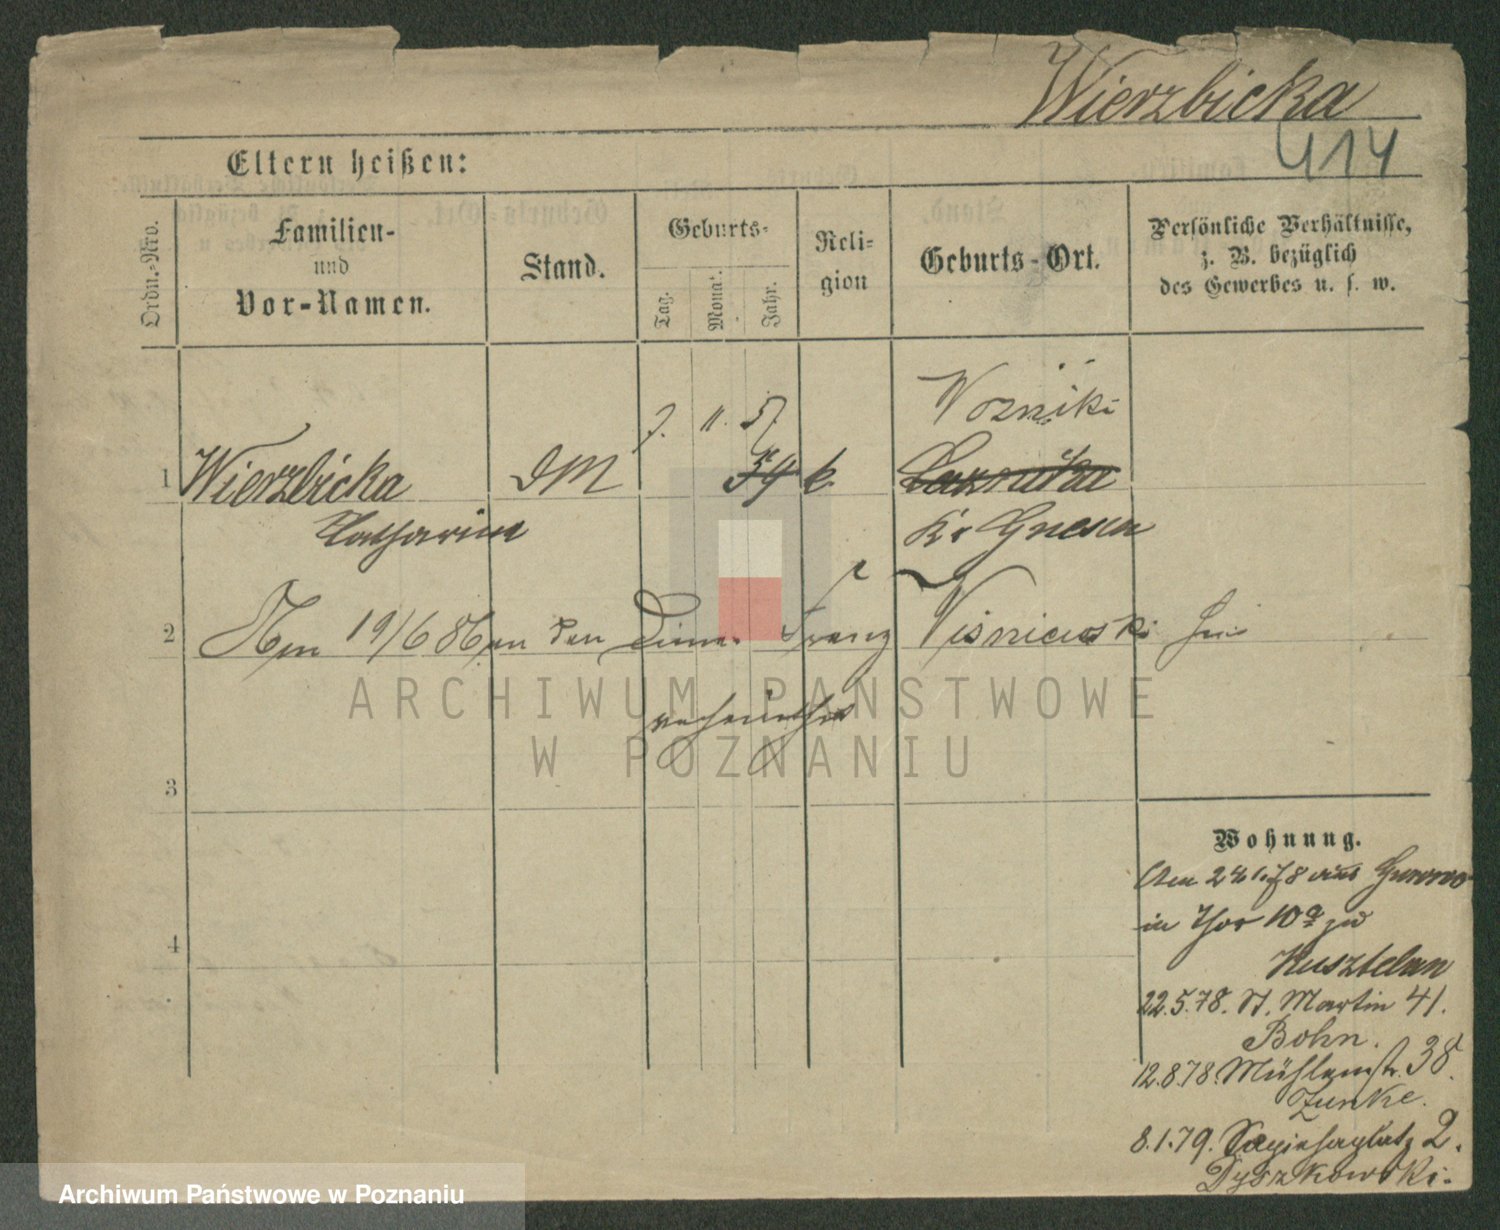 Wierzbicka
414
Eltern heißen:
Ordn.-Nro.
Familien-
und
Vor-Namen.
Stand.
Geburts-
Tag.
Monat.
Jahr.
Reli-
gion
Geburts-Ort.
Persönliche Verhältnisse,
z. B. bezüglich
des Gewerbes u. s. w.
7. 11. 57. Wozniki
1 Wierzbicka DM 54 k.
Katharina Kr Gnesen
2 Am 19/6 86 an den Diener Franz Visniewski
verheirathet
3
4
ARCHIWUM PAŃSTWOWE
W POZNANIU
Wohnung.
Am 24 1.78 aus Gurowo
in Thor 10a zu
Kusztelan
22.5.78. St. Martin 41.
Bohn.
12.8.78. Mühlenstr. 38.
Zunke.
8.1.79. Sapiehaplatz 2.
Dyszkowski.
Archiwum Państwowe w Poznaniu